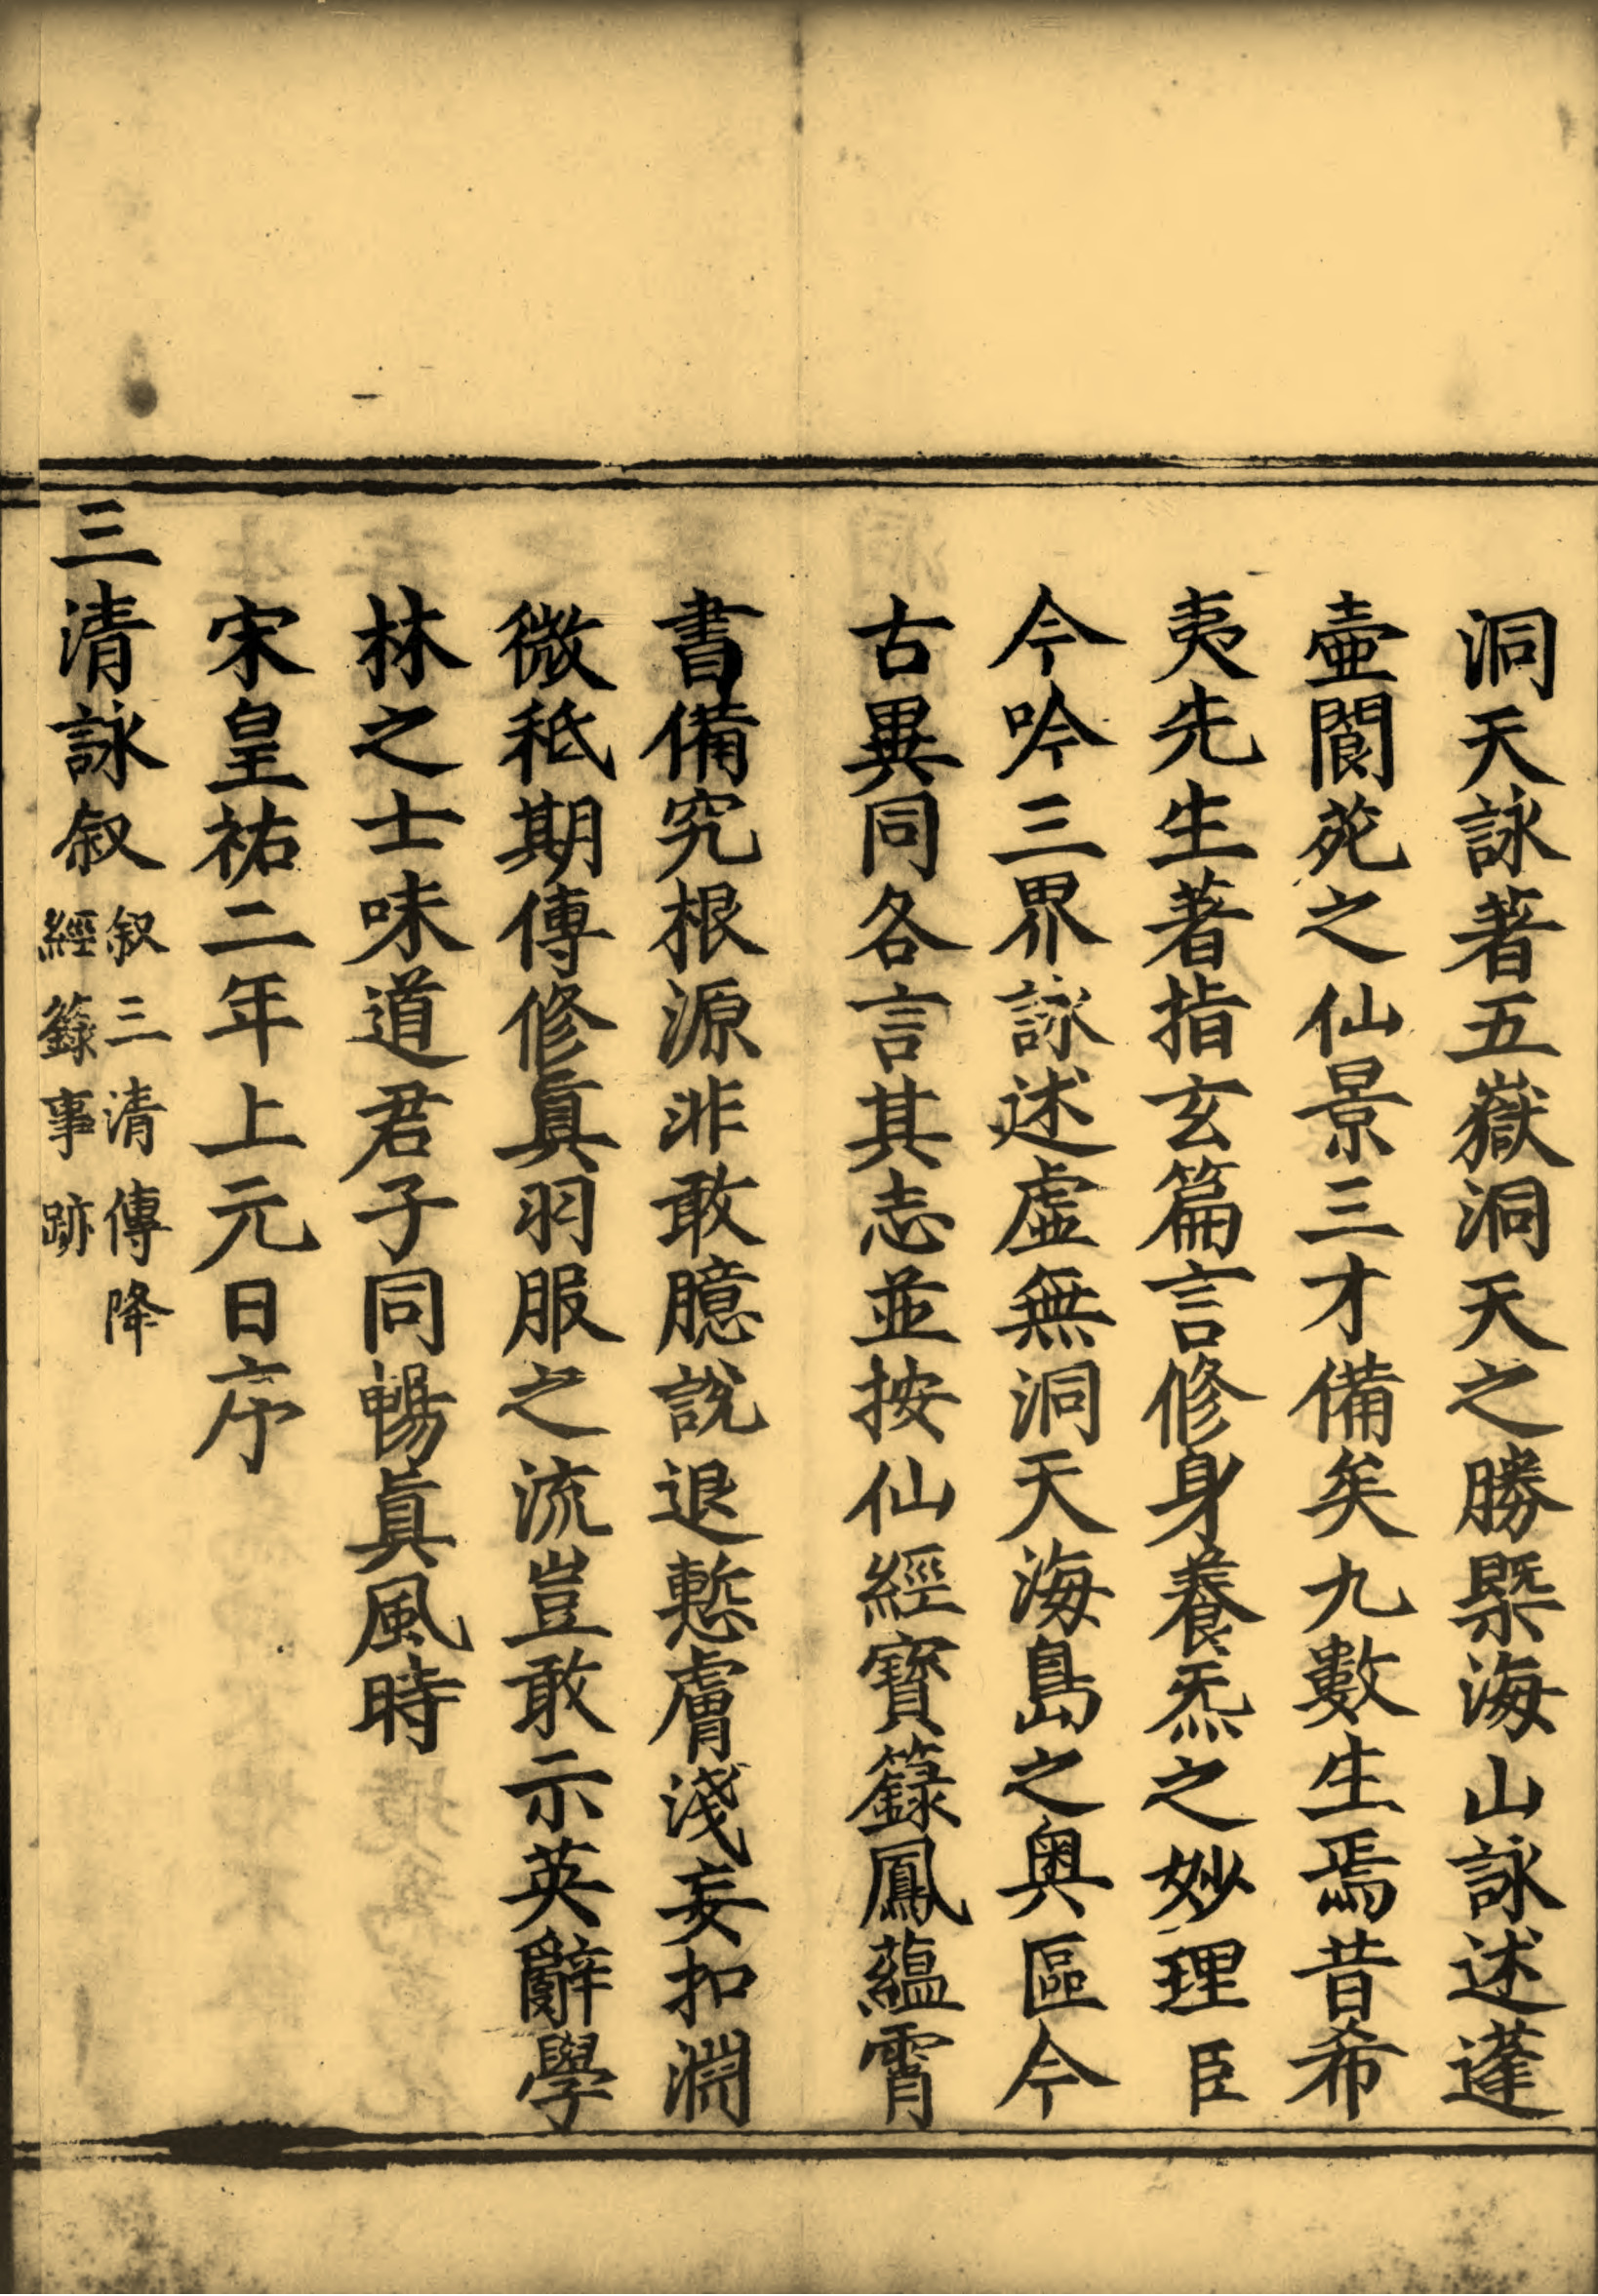 洞天詠著五嶽洞天之勝槩海山詠述蓬
壷閬苑之仙景三才備矣九數生焉昔希
夷先生著指玄篇言修身養炁之妙理臣
今吟三界詠述虛無洞天海島之奥區今
古異同各言其志並按仙經寳籙鳳蘊霄
書備究根源非敢臆說退慙膚淺妄扣淵
微秪期傳修眞羽服之流豈敢示英辭學
林之士味道君子同暢眞風時
宋皇祐二年上元日序
三清詠叙
叙三清傳降
經籙事跡